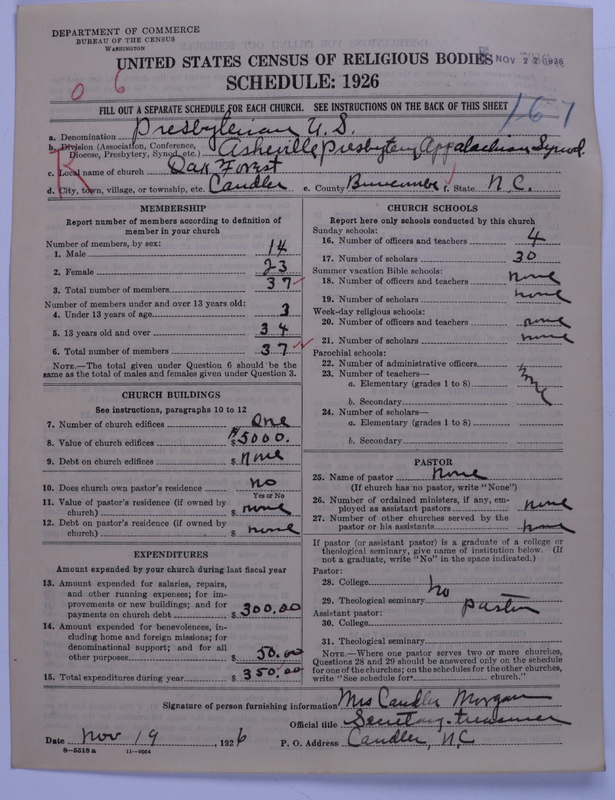 DEPARTMENT OF COMMERCE
BUREAU OF THE CENSUS
WASHINGTON
UNITED STATES CENSUS OF RELIGIOUS BODIES
NOV 22 1926
SCHEDULE: 1926
0 6
FILL OUT A SEPARATE SCHEDULE FOR EACH CHURCH. SEE INSTRUCTIONS ON THE BACK OF THIS SHEET
167
a. Denomination Presbyterian U.S.
b. Division (Association, Conference, Diocese, Presbytery, Synod, etc.) Asheville Presbytery Appalachian Synod.
c. Local name of church Oak Forest
d. City, town, village, or township, etc. Candler e. County Buncombe f. State N.C.
MEMBERSHIP
Report number of members according to definition of
member in your church
Number of members, by sex:
1. Male 14
2. Female 23
3. Total number of members 37
Number of members under and over 13 years old:
4. Under 13 years of age 3
5. 13 years old and over 34
6. Total number of members 37
NOTE.—The total given under Question 6 should be
same as the total of males and females given under Question 3.
CHURCH BUILDINGS
See instructions, paragraphs 10 to 12
7. Number of church edifices One
8. Value of church edifices $ $5000.
9. Debt on church edifices $ none
10. Does church own pastor's residence no
Yes or No
11. Value of pastor's residence (if owned by
church) $ none
12. Debt on pastor's residence (if owned by
church) $ none
EXPENDITURES
Amount expended by your church during last fiscal year
13. Amount expended for salaries, repairs,
and other running expenses; for im-
provements or new buildings; and for
payments on church debt $ 300.00
14. Amount expended for benevolences, in-
cluding home and foreign missions; for
denominational support; and for all
other purposes $ 50.00
15. Total expenditures during year $ 350.00
CHURCH SCHOOLS
Report here only schools conducted by this church
Sunday schools:
16. Number of officers and teachers 4
17. Number of scholars 30
Summer vacation Bible schools:
18. Number of officers and teachers none
19. Number of scholars none
Week-day religious schools:
20. Number of officers and teachers none
21. Number of scholars none
Parochial schools:
22. Number of administrative officers
23. Number of teachers—
none
a. Elementary (grades 1 to 8)
b. Secondary
24. Number of scholars—
a. Elementary (grades 1 to 8)
b. Secondary
PASTOR
25. Name of pastor none
(If church has no pastor, write "None")
26. Number of ordained ministers, if any, em-
ployed as assistant pastors none
27. Number of other churches served by the
pastor or his assistants none
If pastor (or assistant pastor) is a graduate of a college or
theological seminary, give name of institution below. (If
not a graduate, write "No" in the space indicated.)
Pastor:
28. College
29. Theological seminary no pastor
Assistant pastor:
30. College
31. Theological seminary
NOTE.—Where one pastor serves two or more churches,
Questions 28 and 29 should be answered only on the schedule
for one of the churches; on the schedules for the other churches,
write "See schedule for church."
Signature of person furnishing information Mrs Candler Morgan
Official title Secretary-treasurer
Date Nov 19, 1926 P. O. Address Candler, N.C
8—5518a 11—9034